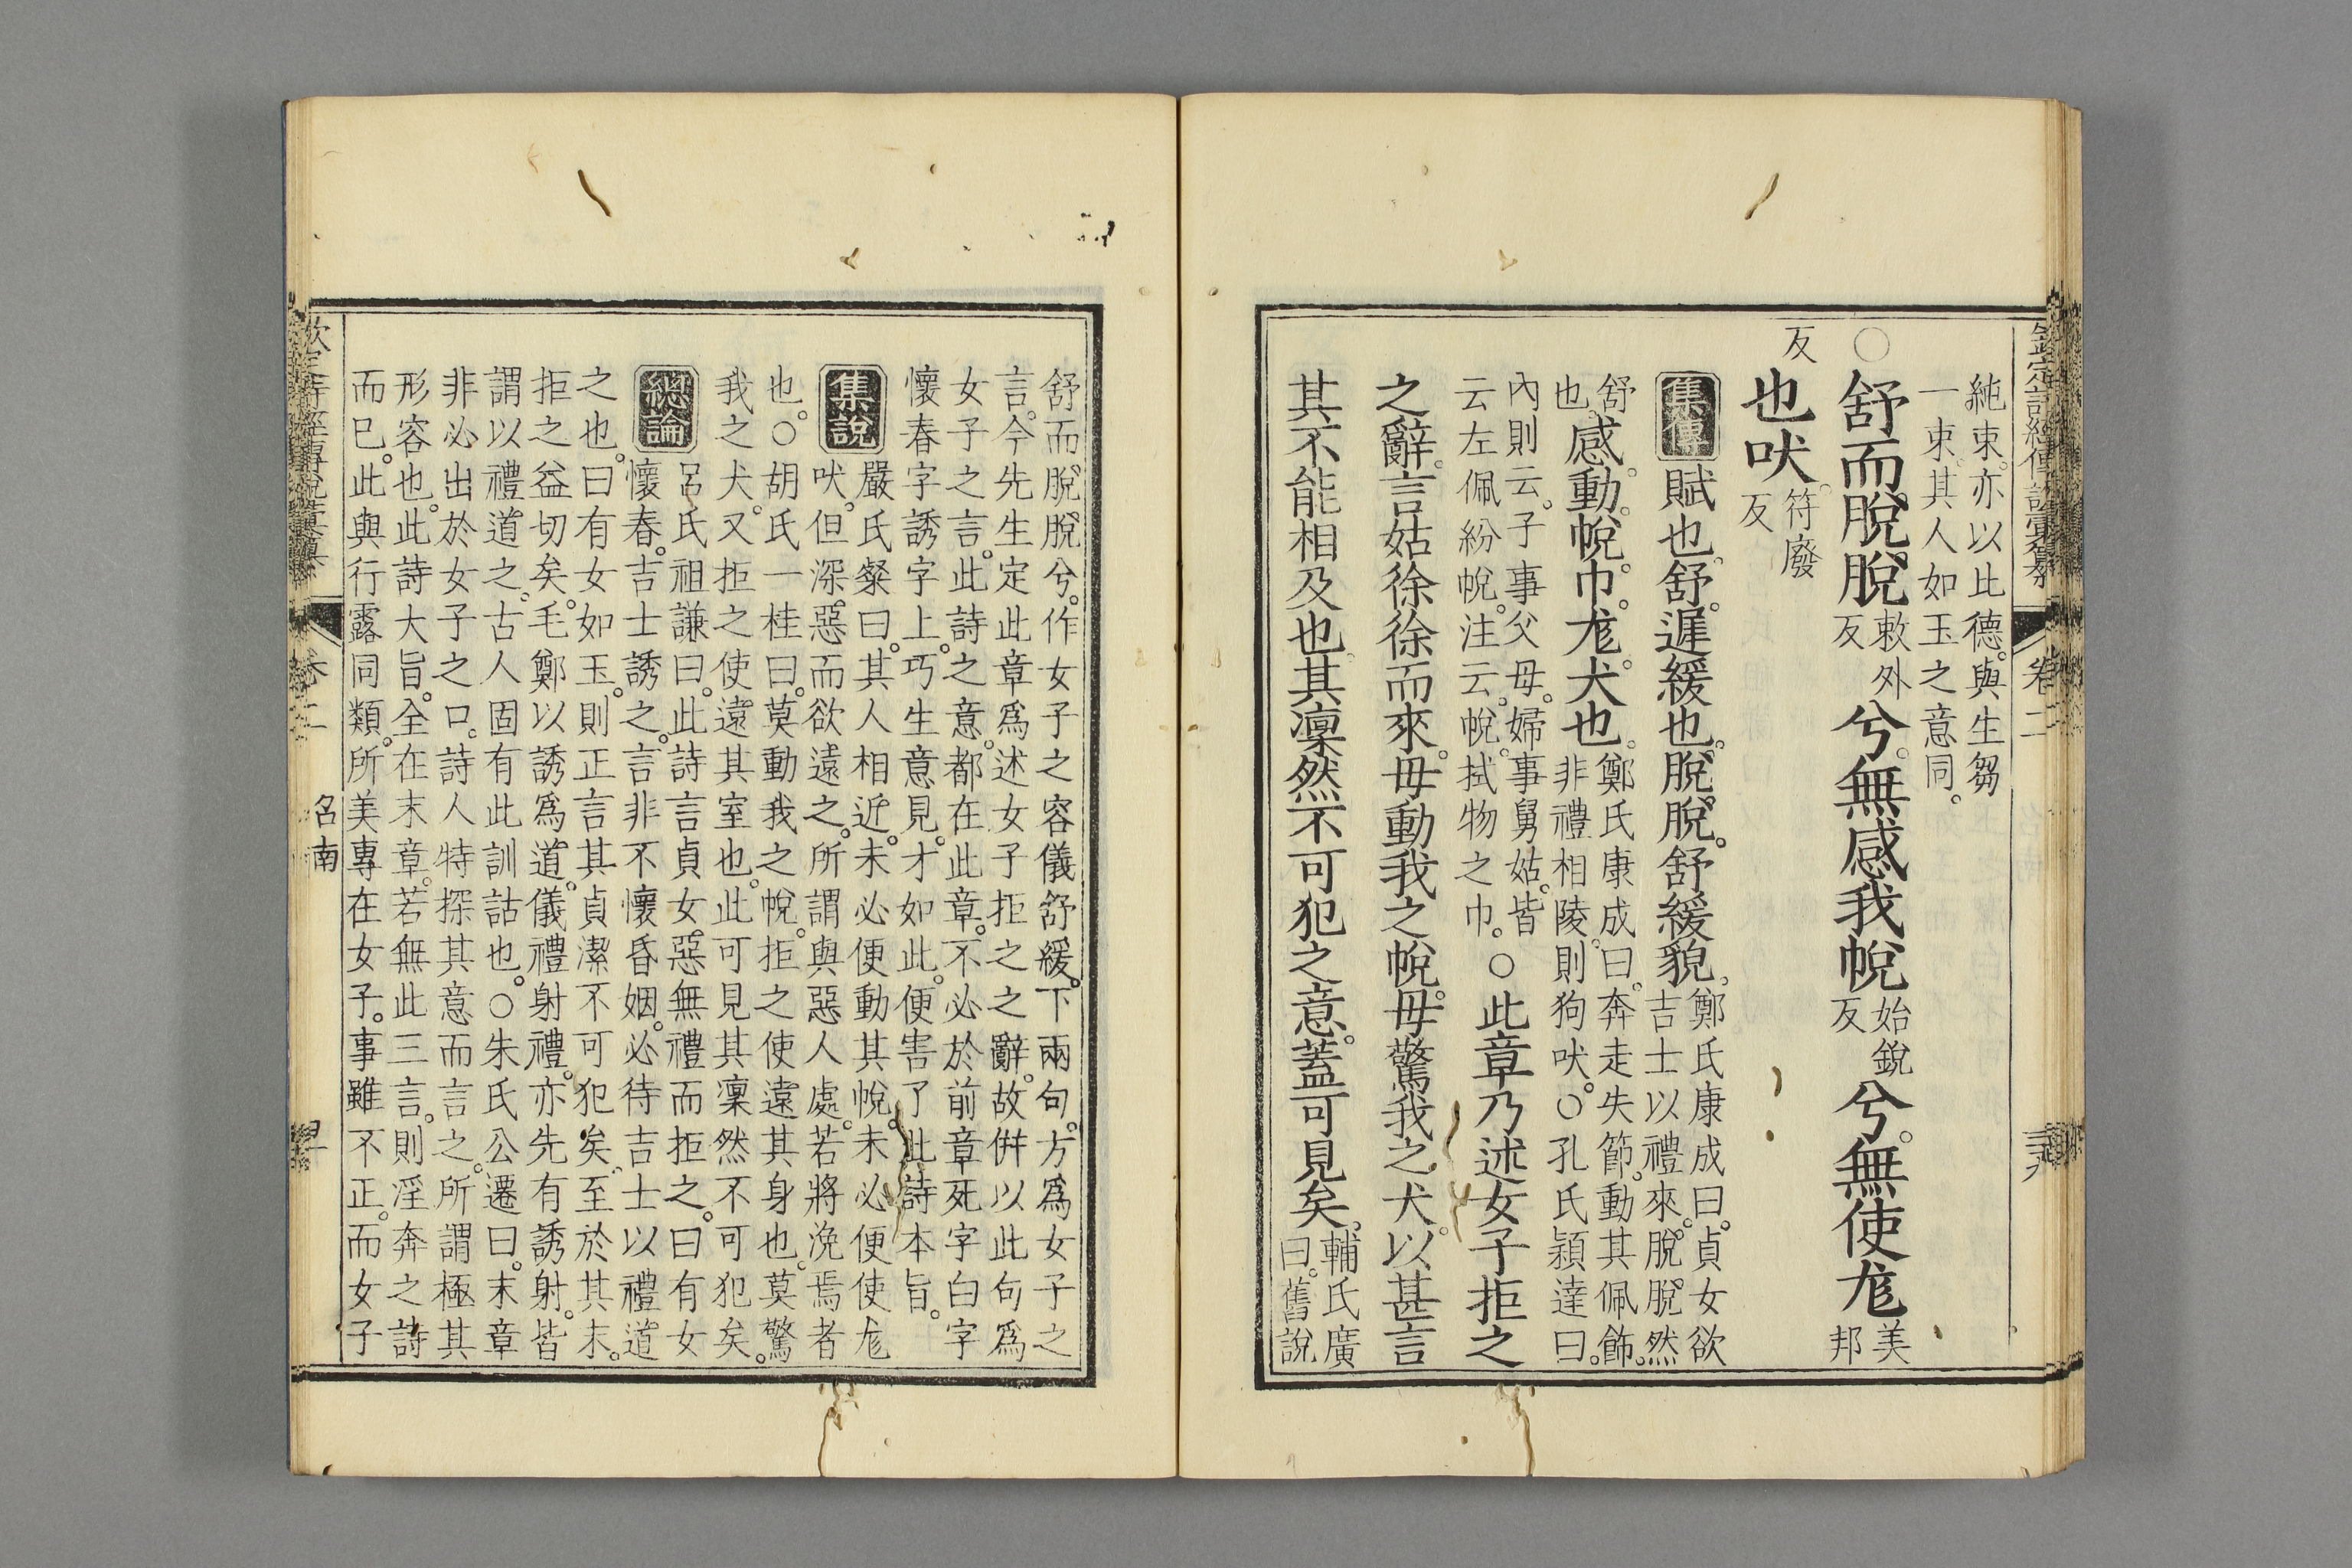 欽定詩經傳說彙纂
卷二
三九
純束。亦以比德。與生芻
一束。其人如玉之意同。
○舒而脫脫敕外反兮。無感我帨始銳反兮。無使尨美邦
反也吠。符廢反
集傳
賦也。舒。遲緩也。脫脫。舒緩貌。鄭氏康成曰。貞女欲
吉士以禮來。脫脫然
舒也。感。動。帨。巾。尨。犬也。鄭氏康成曰。奔走失節。動其佩飾。
非禮相陵。則狗吠。○孔氏穎達曰。
內則云。子事父母。婦事舅姑。皆
云左佩紛帨。注云。帨。拭物之巾。○此章乃述女子拒之
之辭。言姑徐徐而來。毋動我之帨。毋驚我之犬。以甚言
其不能相及也。其凜然不可犯之意。蓋可見矣。輔氏廣
曰。舊說
舒而脫脫兮。作女子之容儀舒緩。下兩句。方爲女子之
言。今先生定此章爲述女子拒之之辭。故併以此句爲
女子之言。此詩之意。都在此章。不必於前章死字白字
懷春字誘字上。巧生意見。才如此。便害了此詩本旨。
集說
嚴氏粲曰。其人相近。未必便動其帨。未必便使尨
吠。但深惡而欲遠之。所謂與惡人處。若將浼焉者
也。○胡氏一桂曰。莫動我之帨。拒之使遠其身也。莫驚
我之犬。又拒之使遠其室也。此可見其凜然不可犯矣。
總論
呂氏祖謙曰。此詩言貞女。惡無禮而拒之。曰有女
懷春。吉士誘之。言非不懷昏姻。必待吉士以禮道
之也。曰有女如玉。則正言其貞潔不可犯矣。至於其末。
拒之益切矣。毛鄭以誘爲道。儀禮射禮。亦先有誘射。皆
謂以禮道之。古人固有此訓詁也。○朱氏公遷曰。末章
非必出於女子之口。詩人特探其意而言之。所謂極其
形容也。此詩大旨。全在末章。若無此三言。則淫奔之詩
而已。此與行露同類。所美專在女子。事雖不正。而女子
欽定詩經傳說彙纂
卷二
召南